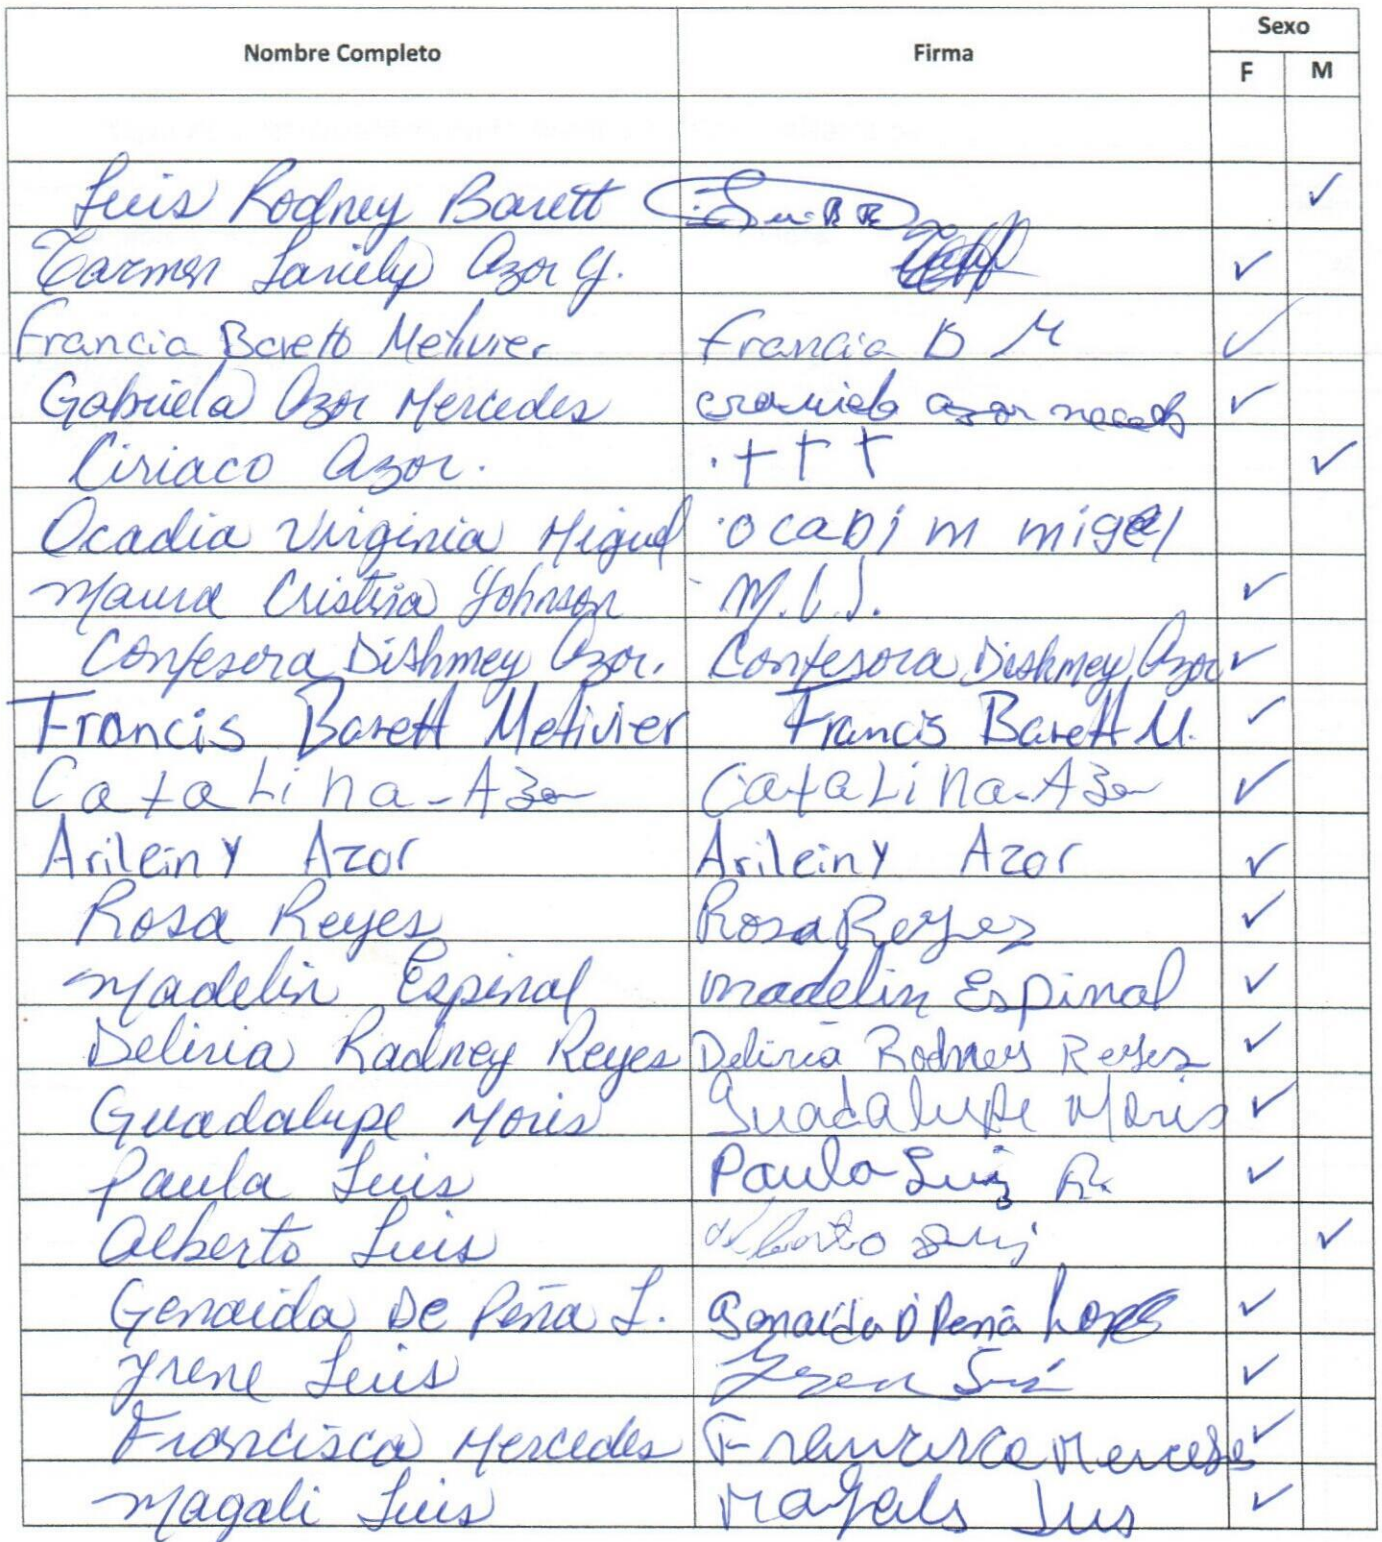 Nombre Completo Firma Sexo
F M
Luis Rodney Barett ✓
Carmen Lariely Azor G. ✓
Francia Barett Metivier Francia B M ✓
Gabriela Azor Mercedes azor ✓
Ciriaco Azor. . + + + ✓
Ocadia Virginia Miguel ocaDi m migel
Maura Cristina Johnson M.C.J. ✓
Confesora Dishmey Azor. Confesora Dishmey Azor ✓
Francis Barett Metivier Francis Barett M. ✓
CataLina-A3or CataLina-A3or ✓
Arileiny Azor Arileiny Azor ✓
Rosa Reyes Rosa Reyes ✓
Madelin Espinal madelin Espinal ✓
Deliria Radney Reyes Deliria Rodney Reyes ✓
Guadalupe Moris Guadalupe Moris ✓
Paula Luis Paula Luis ✓
Alberto Luis Alberto Luis ✓
Genaida De Peña L. Genaida D Peña Lopes ✓
Yrene Luis ✓
Francisca Mercedes Francisca Mercedes ✓
Magali Luis Magals Lus ✓